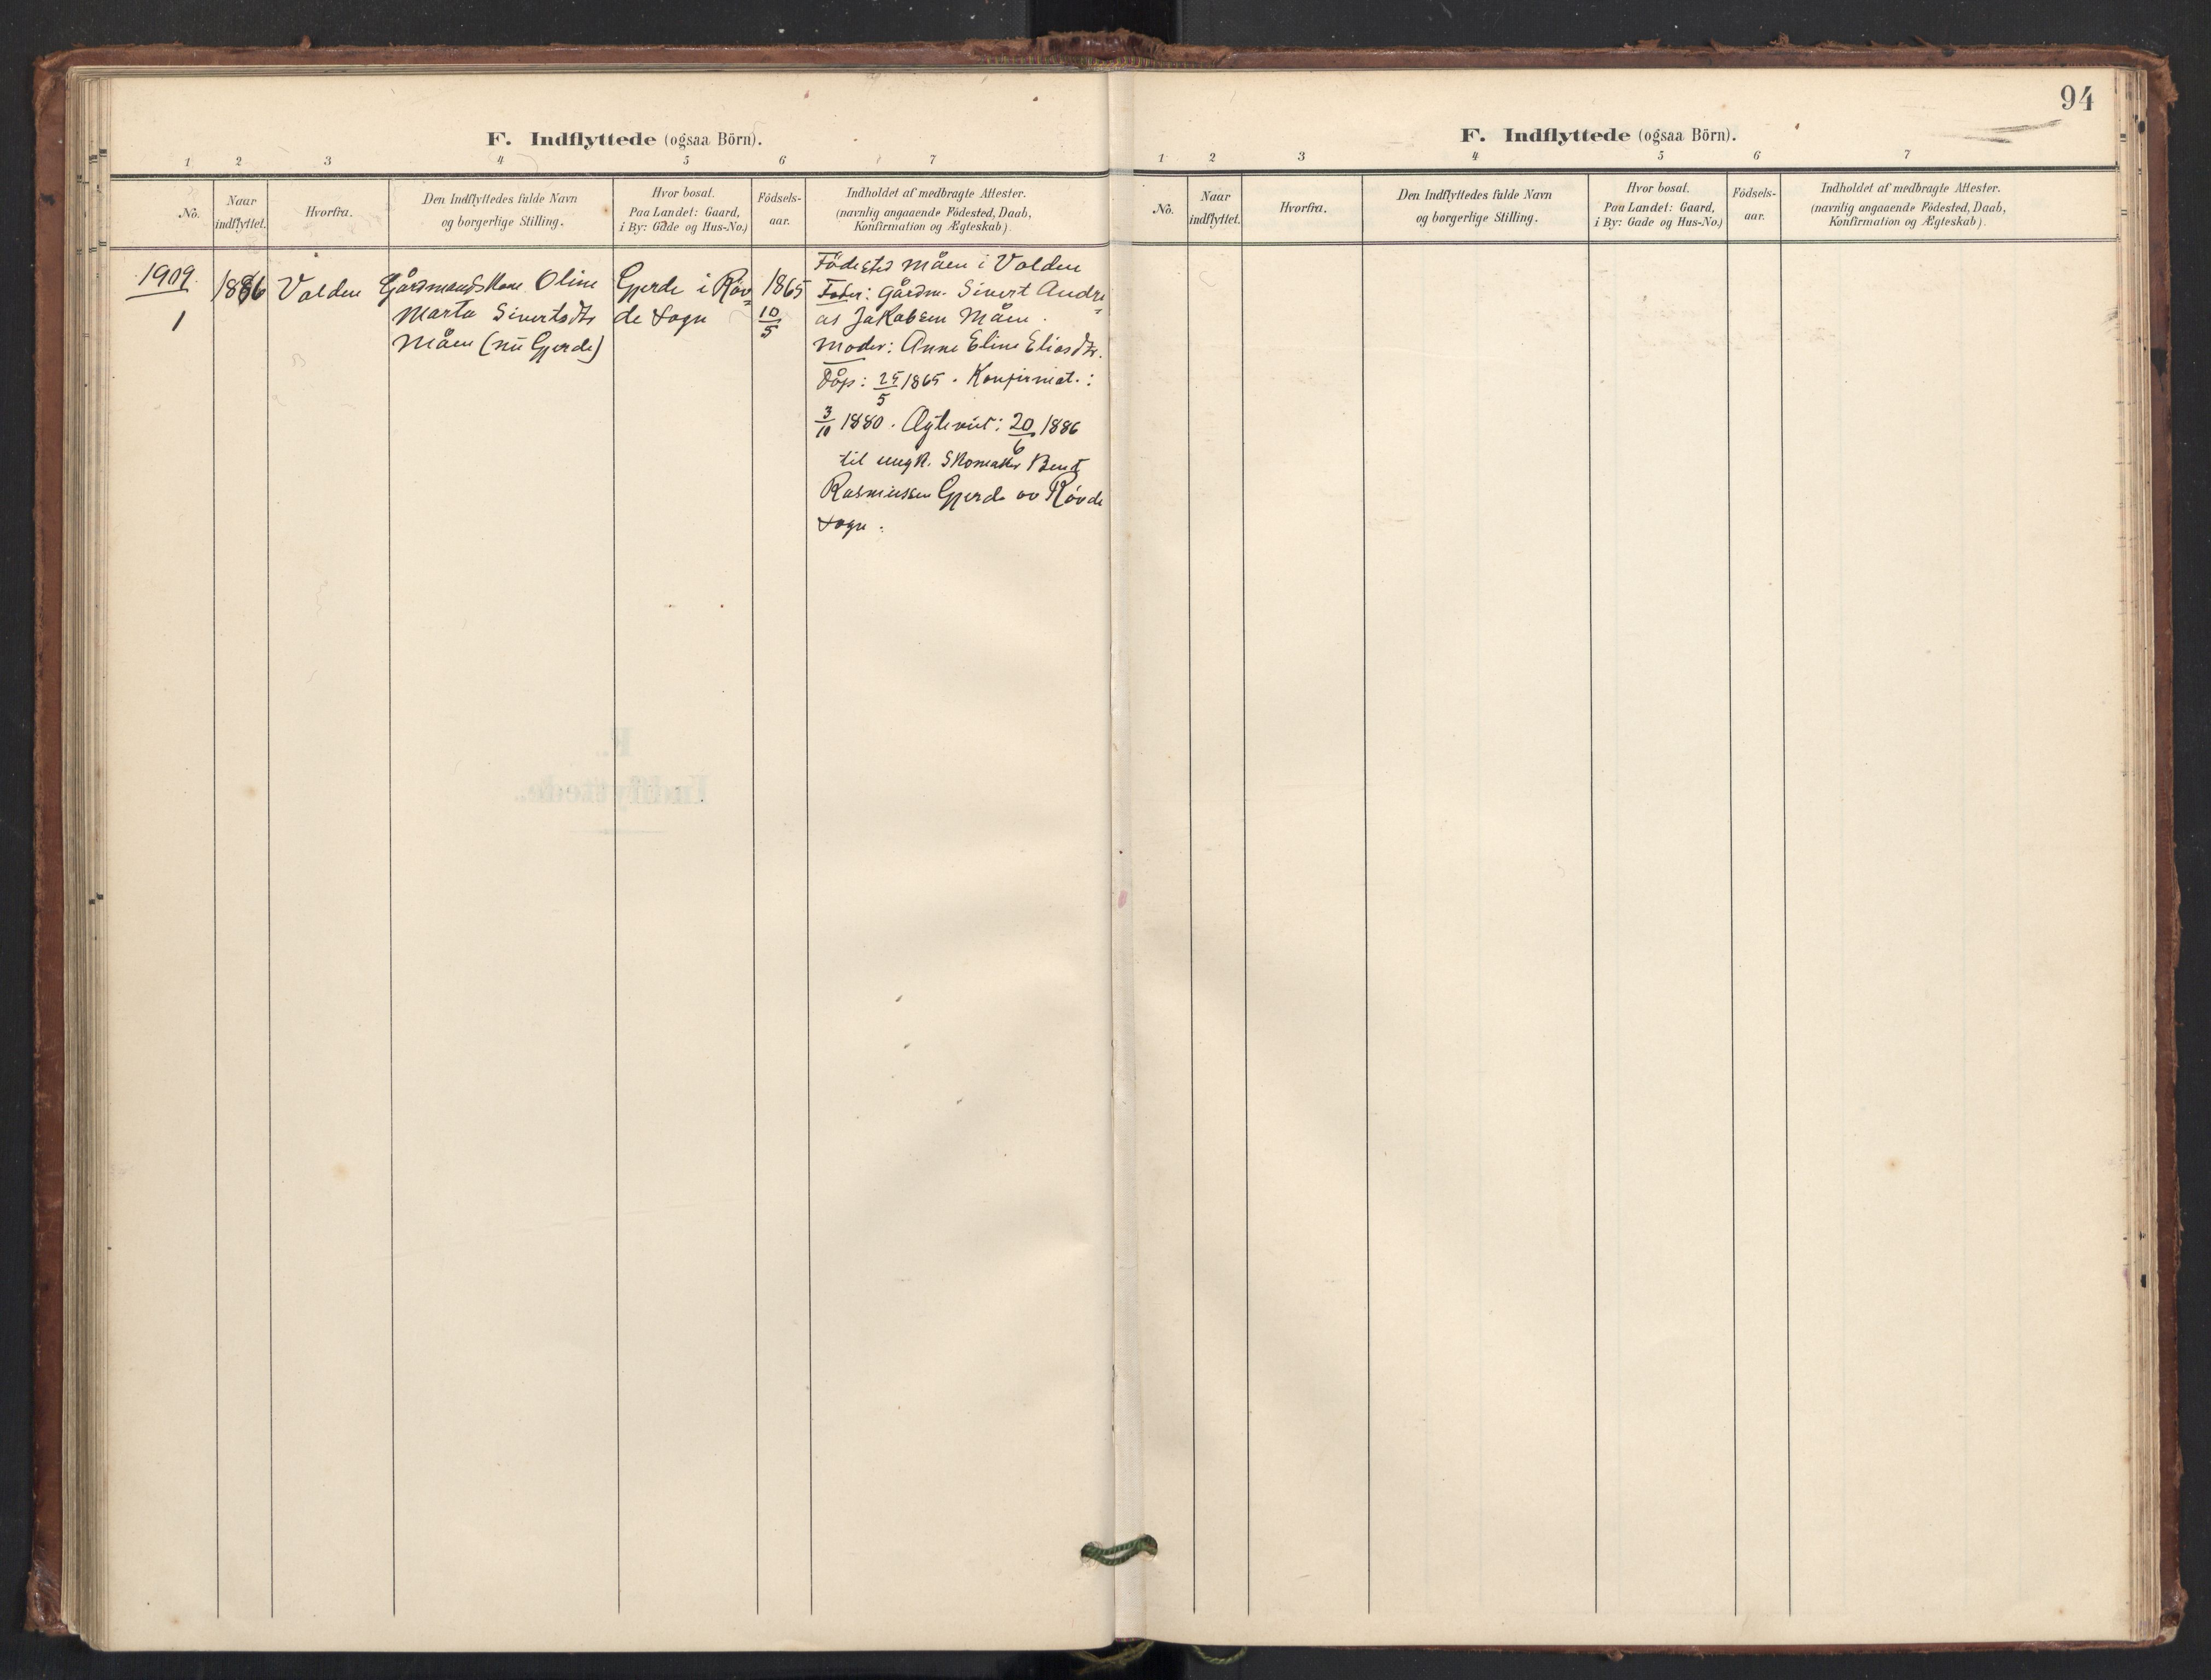 94
F. Indflyttede (ogsaa Börn).
1 2 3 4 5 6 7
No. Naar indflyttet. Hvorfra. Den Indflyttedes fulde Navn og borgerlige Stilling. Hvor bosat. Paa Landet: Gaard, i By: Gade og Hus-No.) Födsels-aar. Indholdet af medbragte Attester. (navnlig angaaende Födested, Daab, Konfirmation og Ægteskab).
1909.
1
1886
Volden
Gårdmandskone Oline
Marta Sivertsdtr
Måen (nu Gjerde)
Gjerde i Röv-
de Sogn
1865
10/5
Födested Måen i Volden
Fader: Gårdm. Sivert Andre-
as Jakobsen Måen.
Moder: Anne Eline Eliasdtr.
Döp: 25/5 1865. Konfirmat.:
3/10 1880. Ægteviet: 20/6 1886
til ungk. Skomaker Bent
Rasmussen Gjerde av Rövde
Sogn.
F.
Indflyttede.
F. Indflyttede (ogsaa Börn).
1 2 3 4 5 6 7
No. Naar indflyttet. Hvorfra. Den Indflyttedes fulde Navn og borgerlige Stilling. Hvor bosat. Paa Landet: Gaard, i By: Gade og Hus-No.) Födsels-aar. Indholdet af medbragte Attester. (navnlig angaaende Födested, Daab, Konfirmation og Ægteskab).